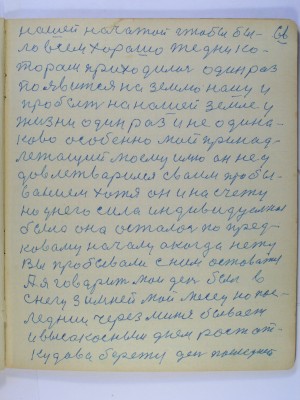 нашей нажатой чтобы бы- 66
ло всем хорошо те дни ко-
торам приходилось один раз
появится на землю нашу и
пробыть на нашей земле у
жизни один раз и не одина-
ково особенно мой принад-
лежащий моему имю он не у
довлетворился своим пробы-
ванием хотя он и на счету
но у него сила индивидуальная
была она осталась по пред-
ковому началу а когда нету
Вы пробывали с ним оставайтесь
А я говорит мой ден был в
снегу зимней мой месец но пос-
ледний через меня бывает
и высакосным днем рост от-
кудава берету ден